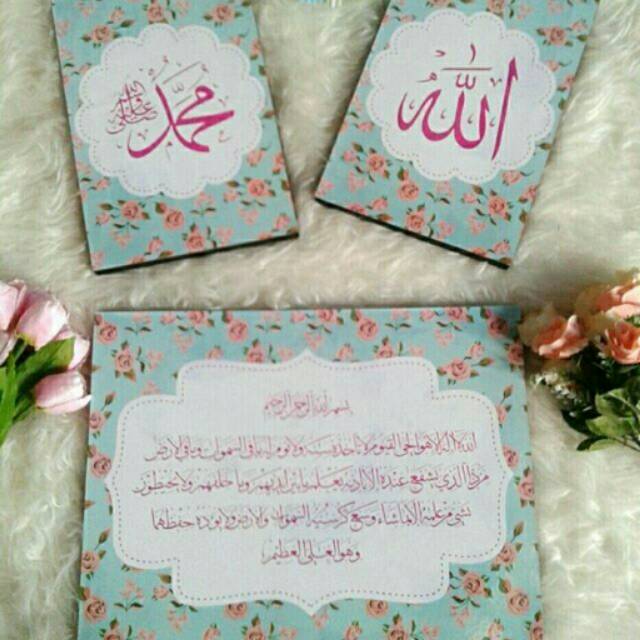 الله
محمد
بسم الله الرحمن الرحيم
الله لا إله إلا هو الحي القيوم لا تأخذه سنة ولا نوم له ما في السموات وما في الأرض
من ذا الذي يشفع عنده إلا بإذنه يعلم ما بين أيديهم وما خلفهم ولا يحيطون
بشيء من علمه إلا بما شاء وسع كرسيه السموات والأرض ولا يؤوده حفظهما
وهو العلي العظيم